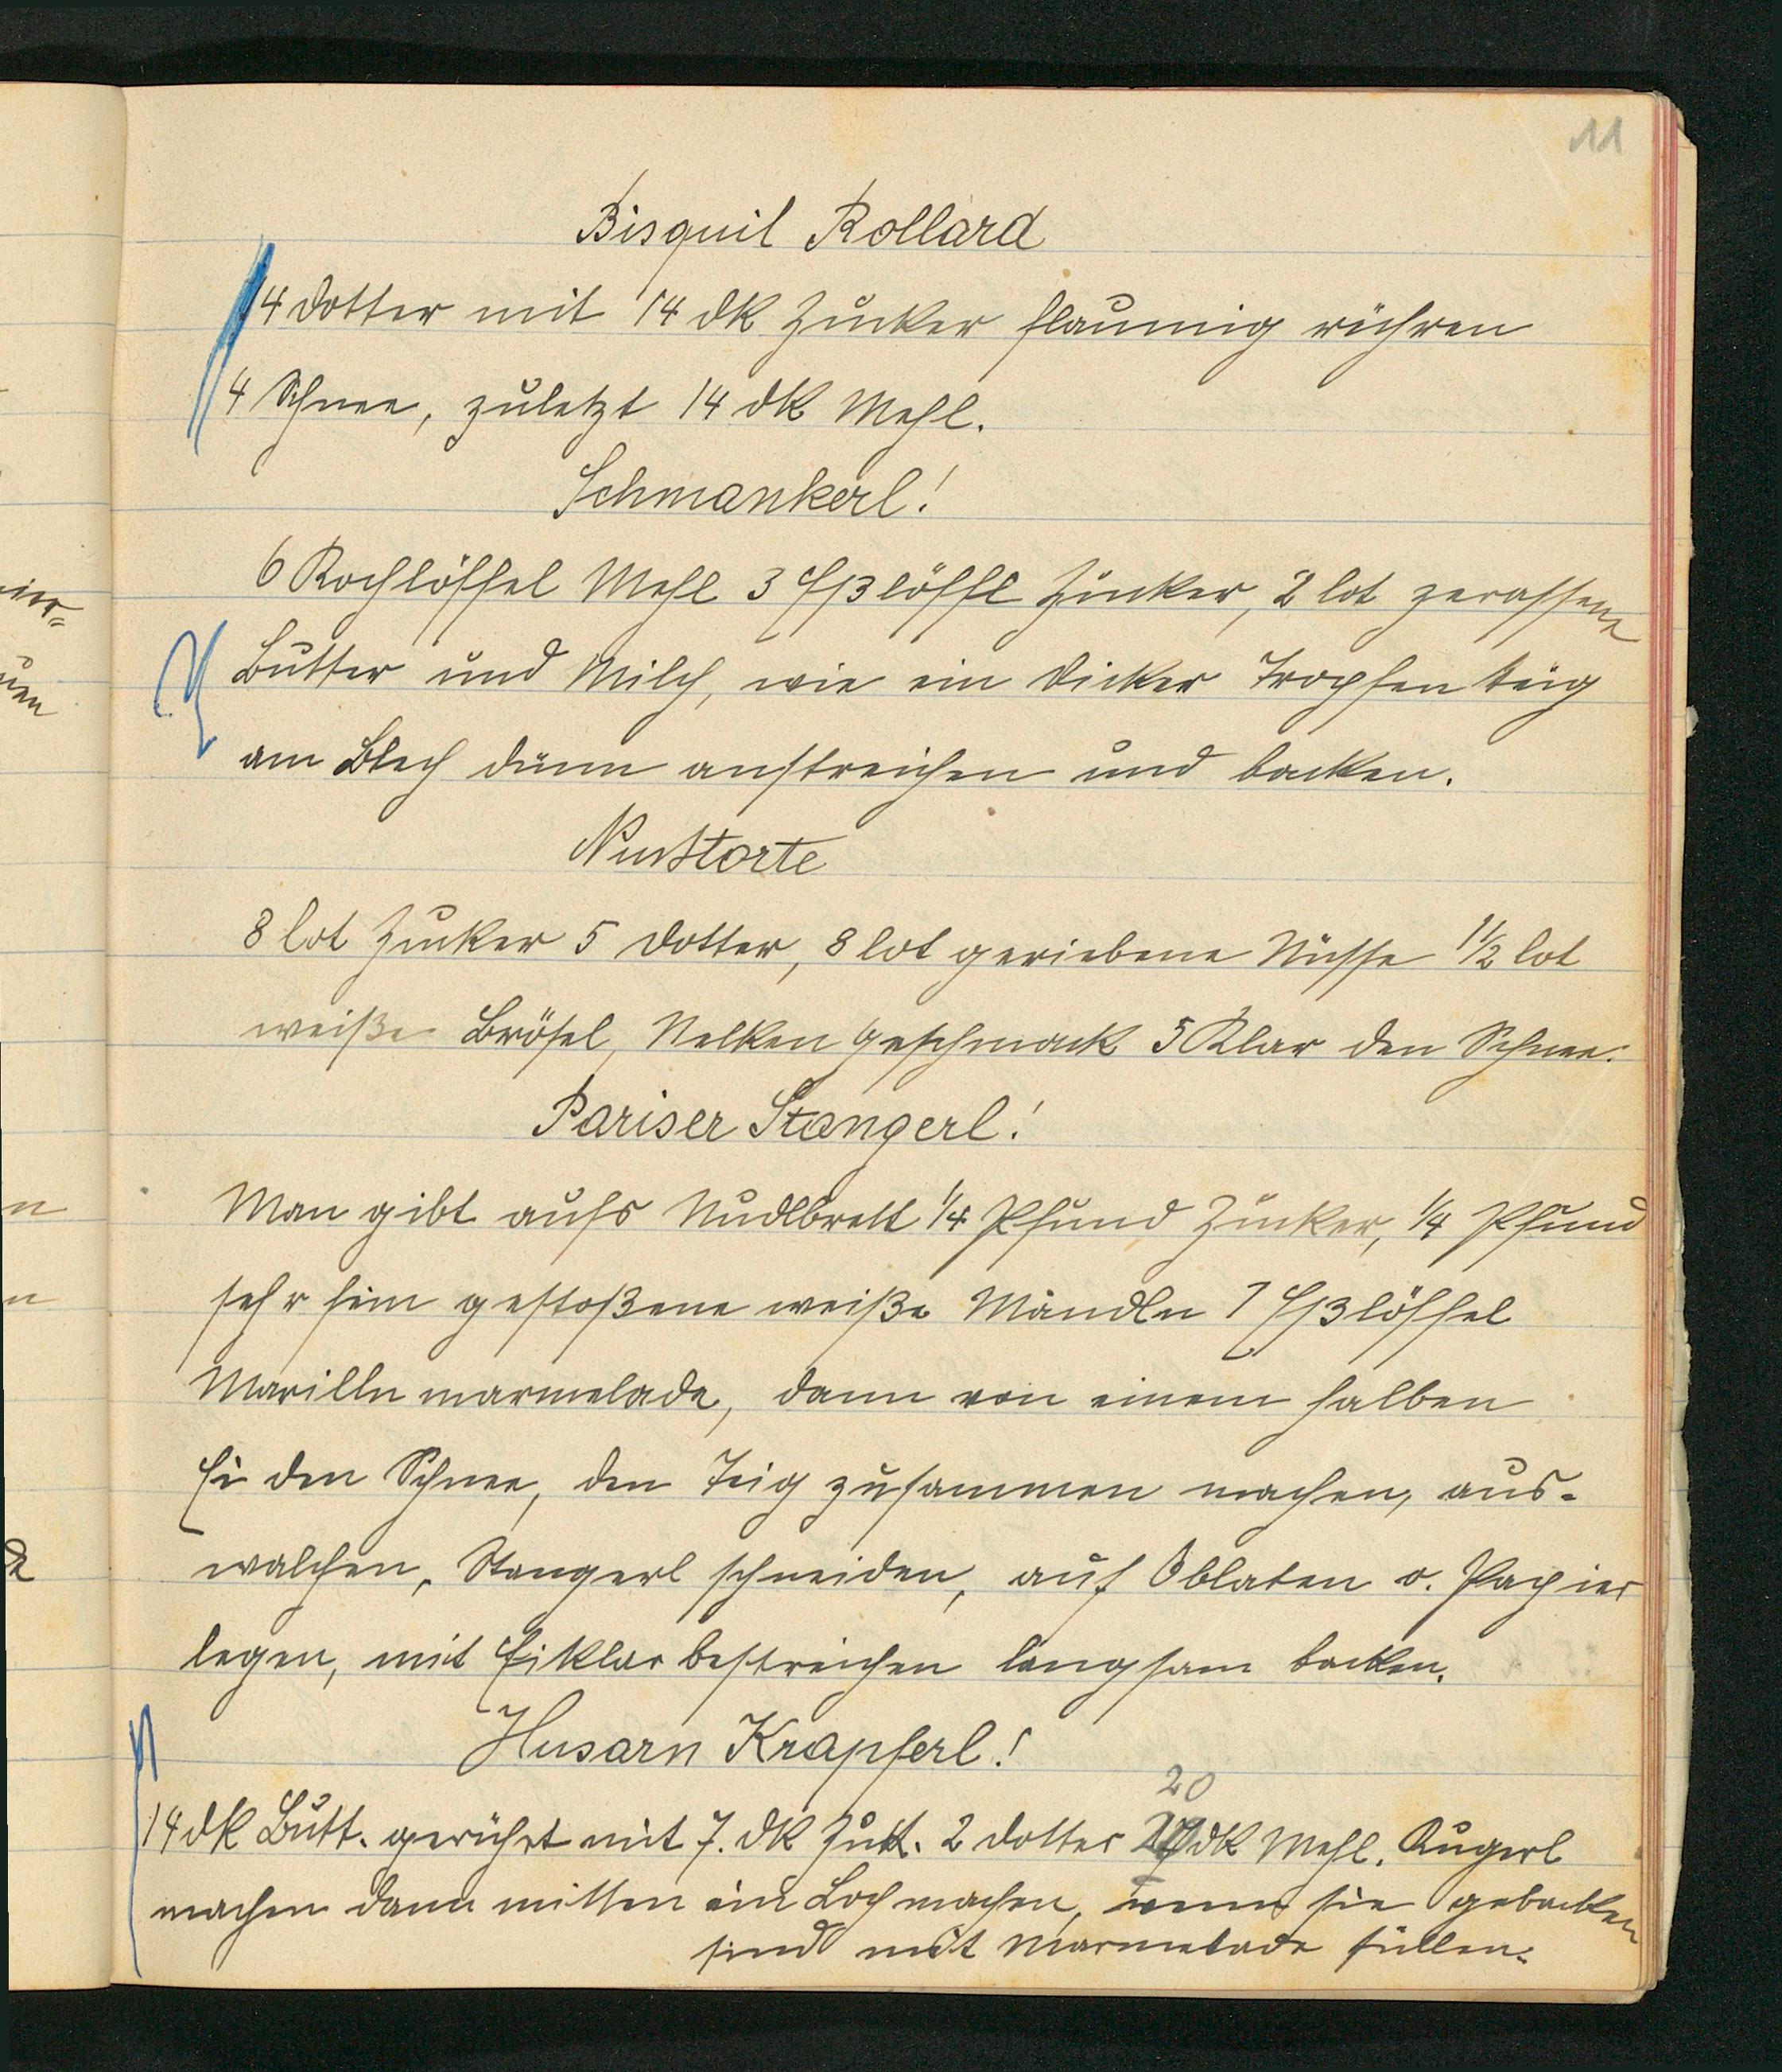 11
Bisquit Rollard
4 Dotter mit 14 dk Zucker flaumig rühren
4 Schnee, zuletzt 14 dk Mehl.
Schmankerl!
6 Kochlöffel Mehl 3 Eßlöffl Zucker, 2 lot zerassene
Butter und Milch, wie ein dicker Tropfen teig
am Blech dünn anstreichen und backen.
Nusstorte
8 lot Zucker 5 Dotter, 8 lot geriebene Nüsse 1½ lot
weiße Brösel, Nelken Geschmack 5 Klar den Schnee.
Pariser Stangerl!
Man gibt aufs Nudlbrett ¼ Pfund Zucker, ¼ Pfund
sehr fein gestoßene weiße Mandln 1 Eßlöffel
Marilln marmelade, dann von einem halben
Ei den Schnee, den Teig zusammen machen, aus-
walchen, Stangerl schneiden, auf Oblaten o. Papier
legen, mit Eiklar bestreichen langsam backen.
Husarn Krapferl!
20
14 dk Butt. gerührt mit 7. dk Zuck. 2 Dotter dk Mehl. Kugerl
machen dann mitten ein Loch machen, wenn sie gebacken
sind mit Marmelade füllen.